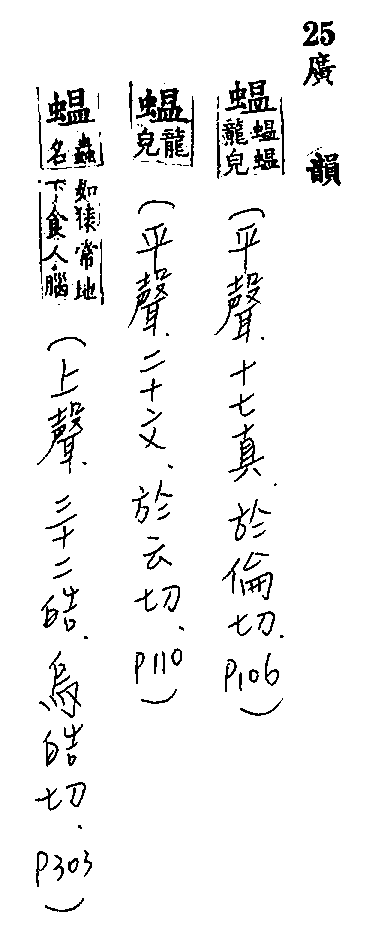 25 廣韻
蝹 蝹蝹龍皃 (平聲.十七真.於倫切.P106)
蝹 龍皃 (平聲.二十文.於云切.P110)
蝹 蟲名如猿常地下食人腦 (上聲.三十二皓.烏皓切.P303)